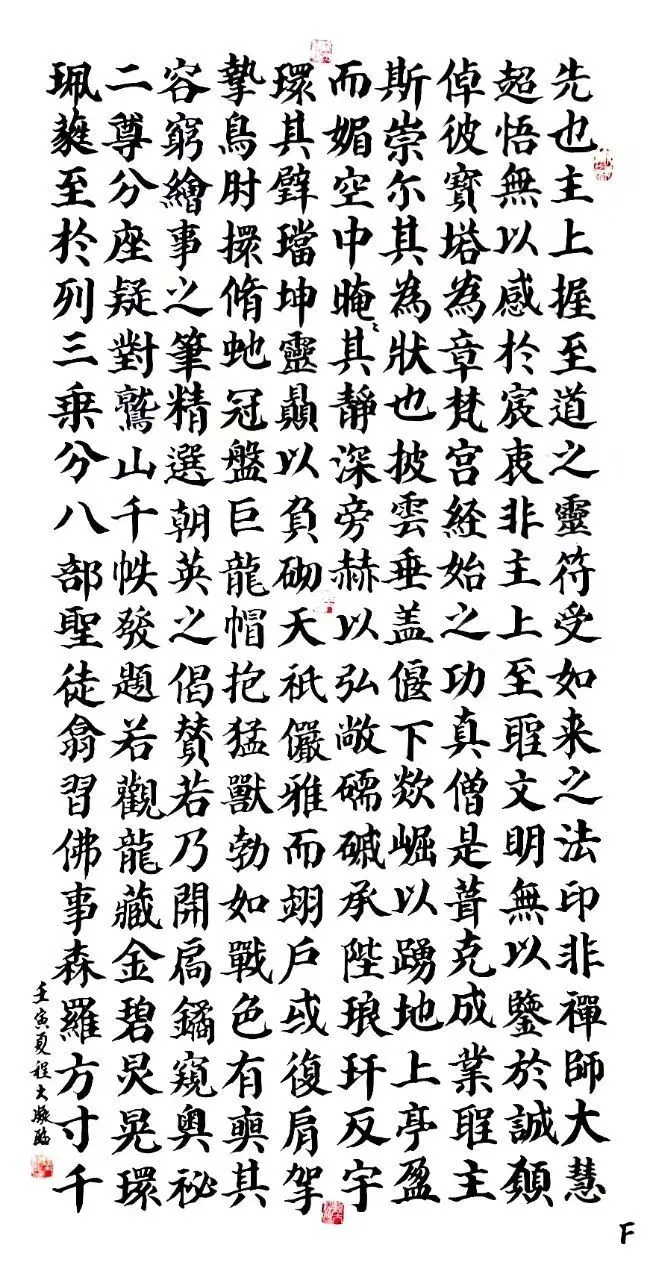 先也主上握至道之靈符受如来之法印非禪師大慧
超悟無以感於宸衷非主上至聖文明無以鑒於誠願
倬彼寳塔為章梵宫経始之功真僧是葺克成業聖主
斯崇尔其為狀也披雲垂盖偃下欻崛以踴地上亭盈
而媚空中晻々其静深旁赫以弘敞礝磩承陛琅玕反宇
環其璧璫坤靈贔以負砌天祇儼雅而翊户或復肩拏
摯鳥肘擐脩虵冠盤巨龍帽抱猛獸勃如戰色有奭其
容窮繪事之筆精選朝英之偈賛若乃開扃鐍窺奥祕
二尊分座疑對鷲山千帙發題若觀龍藏金碧炅晃環
珮蕤至於列三乗分八部聖徒翕習佛事森羅方寸千
壬寅夏程大凝臨
F